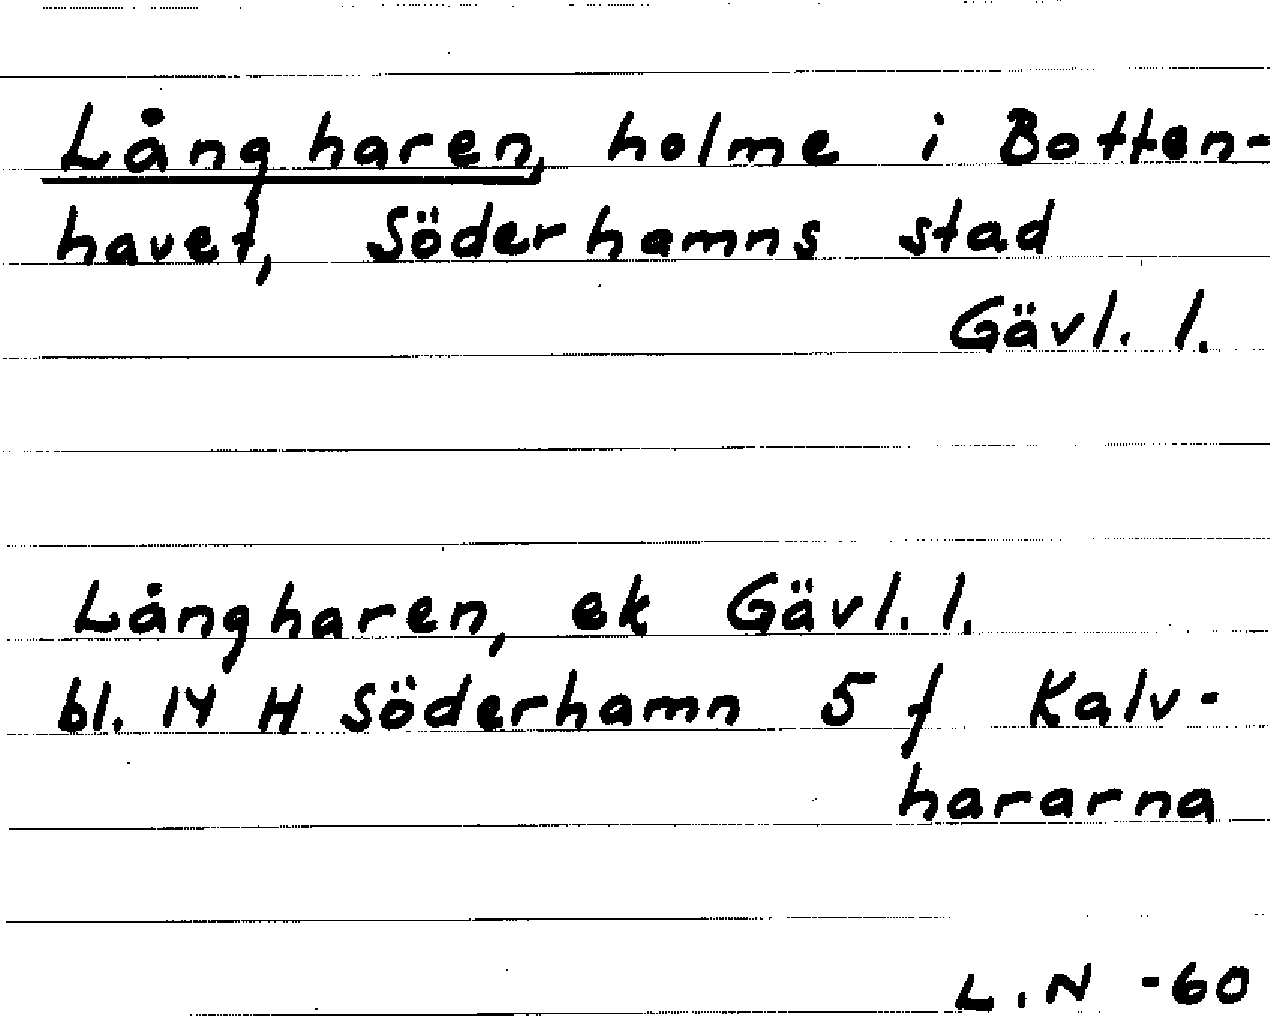 Långharen, holme i Botten-
havet, Söderhamns stad
Gävl. l.
Långharen, ek Gävl. l.
bl. 14 H Söderhamn 5 f Kalv-
hararna
L.N -60